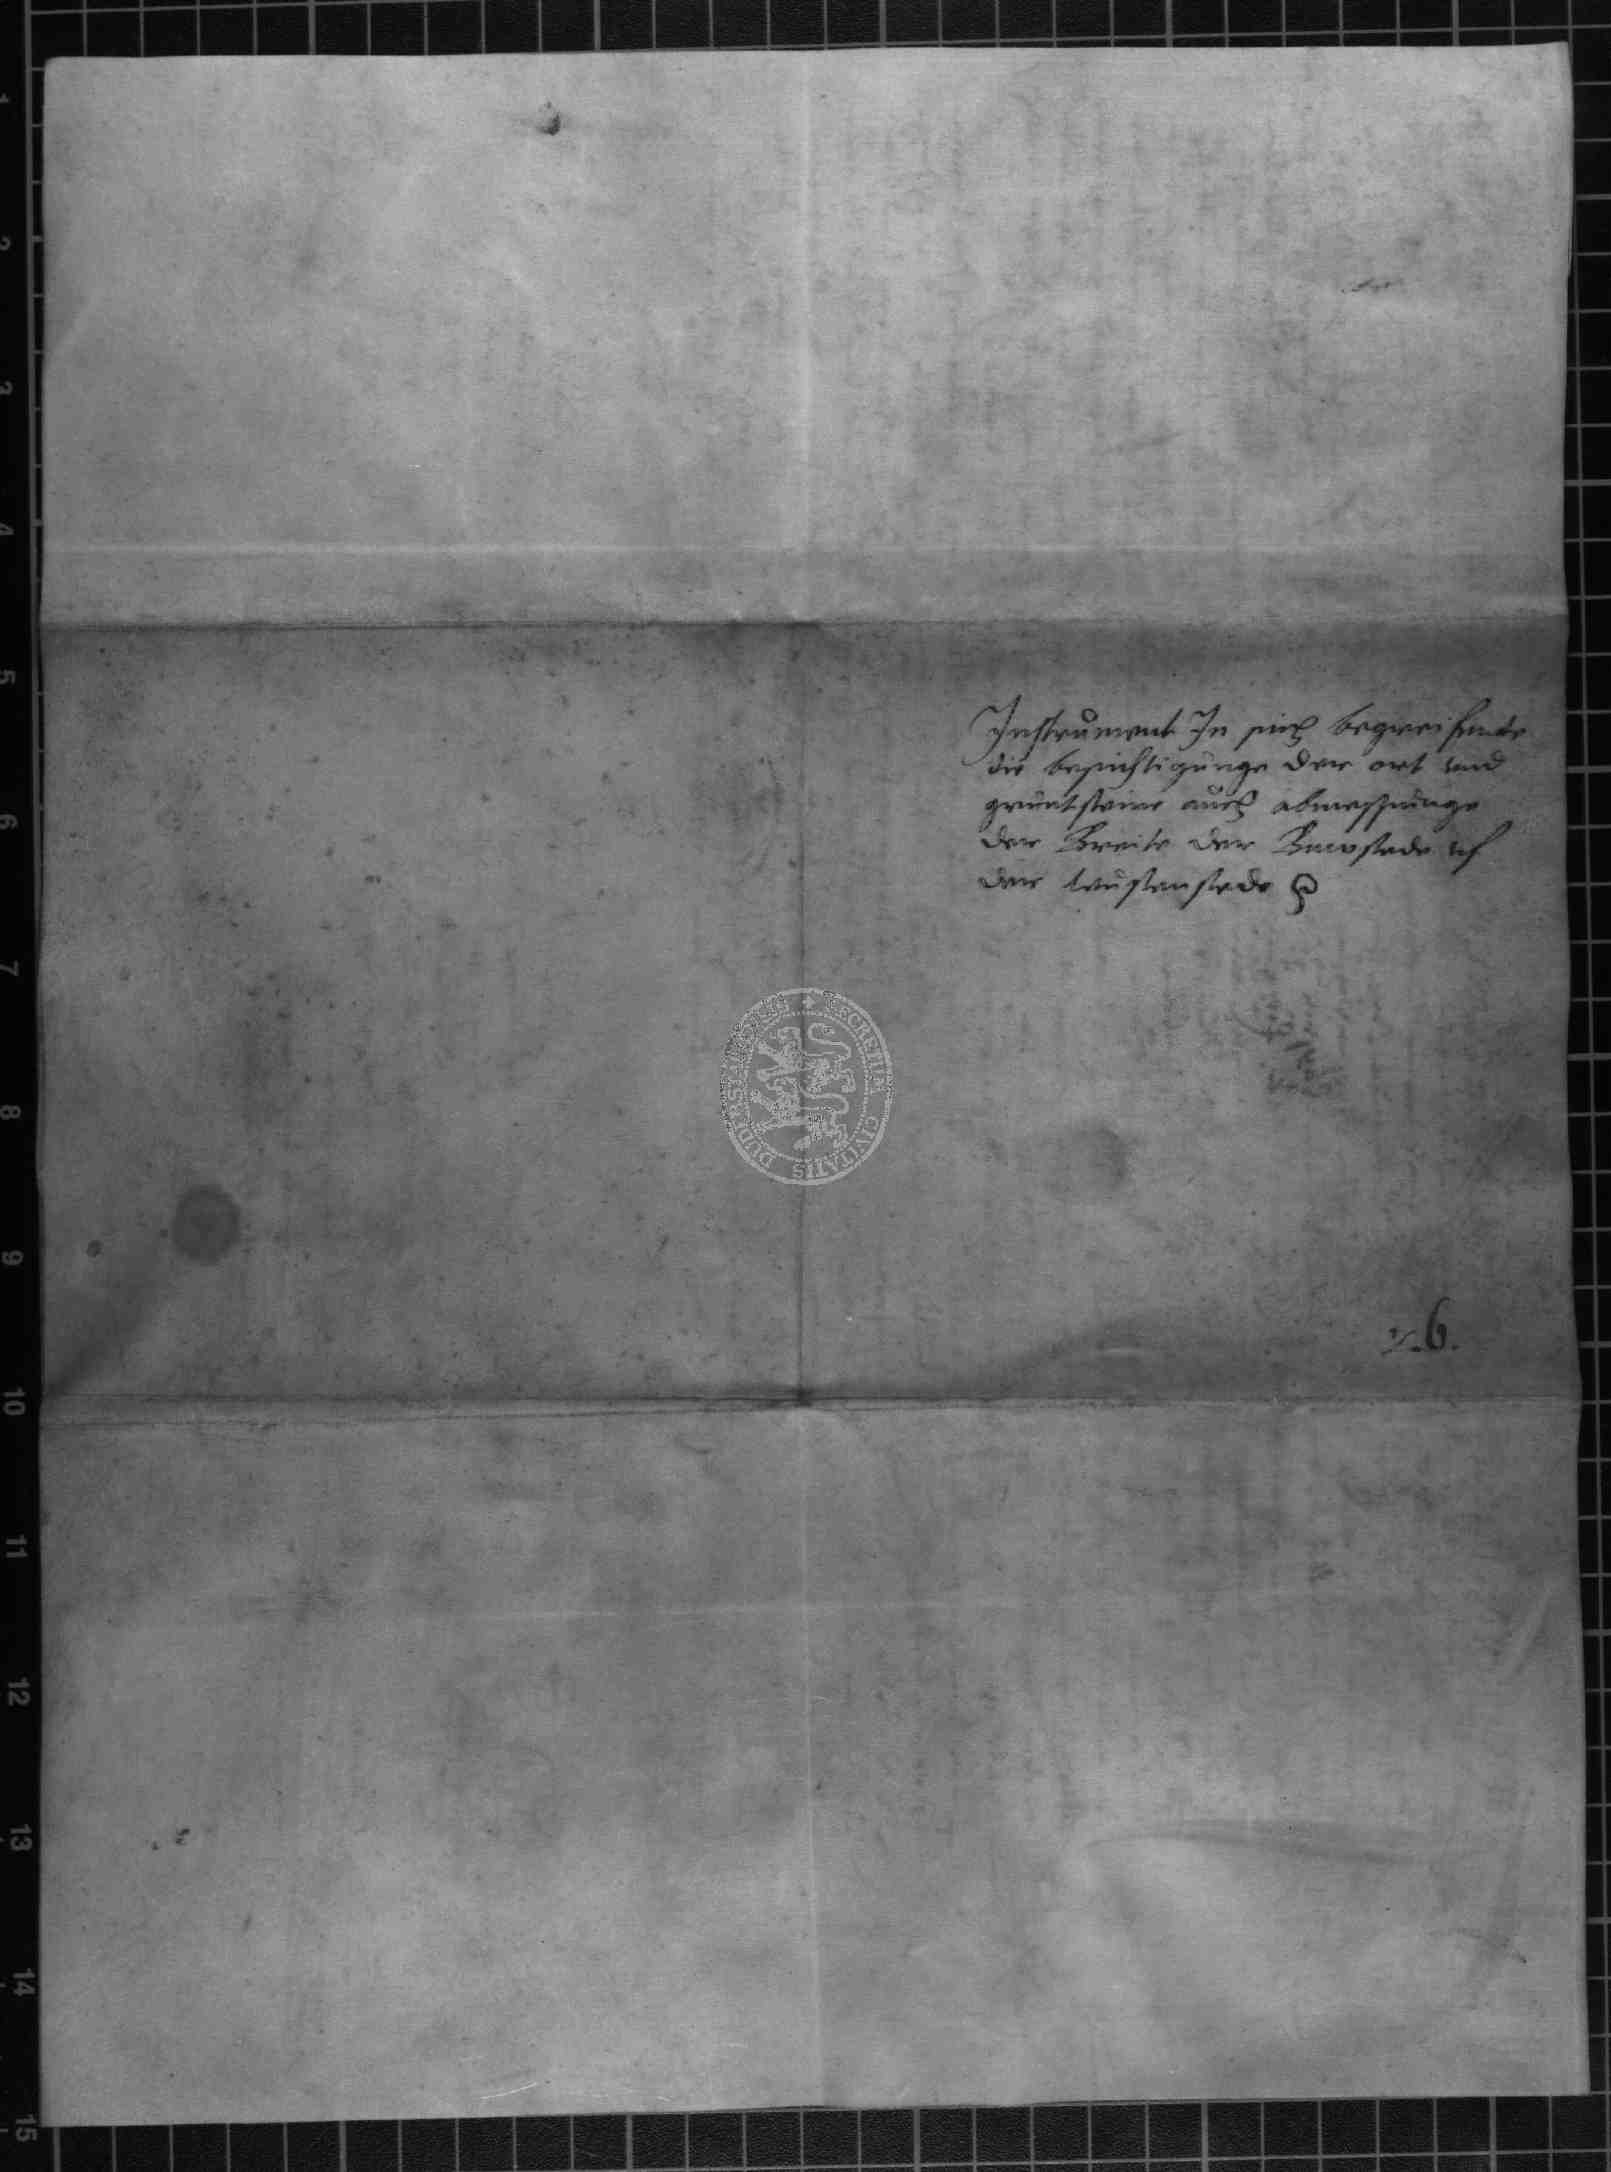 Instrument In sich begreifende
die besichtigunge der ort und
gruntsteine auch abmessunge
der Breite der Bawstede uf
der wustenstede
6.
SECRETUM CIVITATIS DUDERSTADENSIS
1
2
3
4
5
6
7
8
9
10
11
12
13
14
15